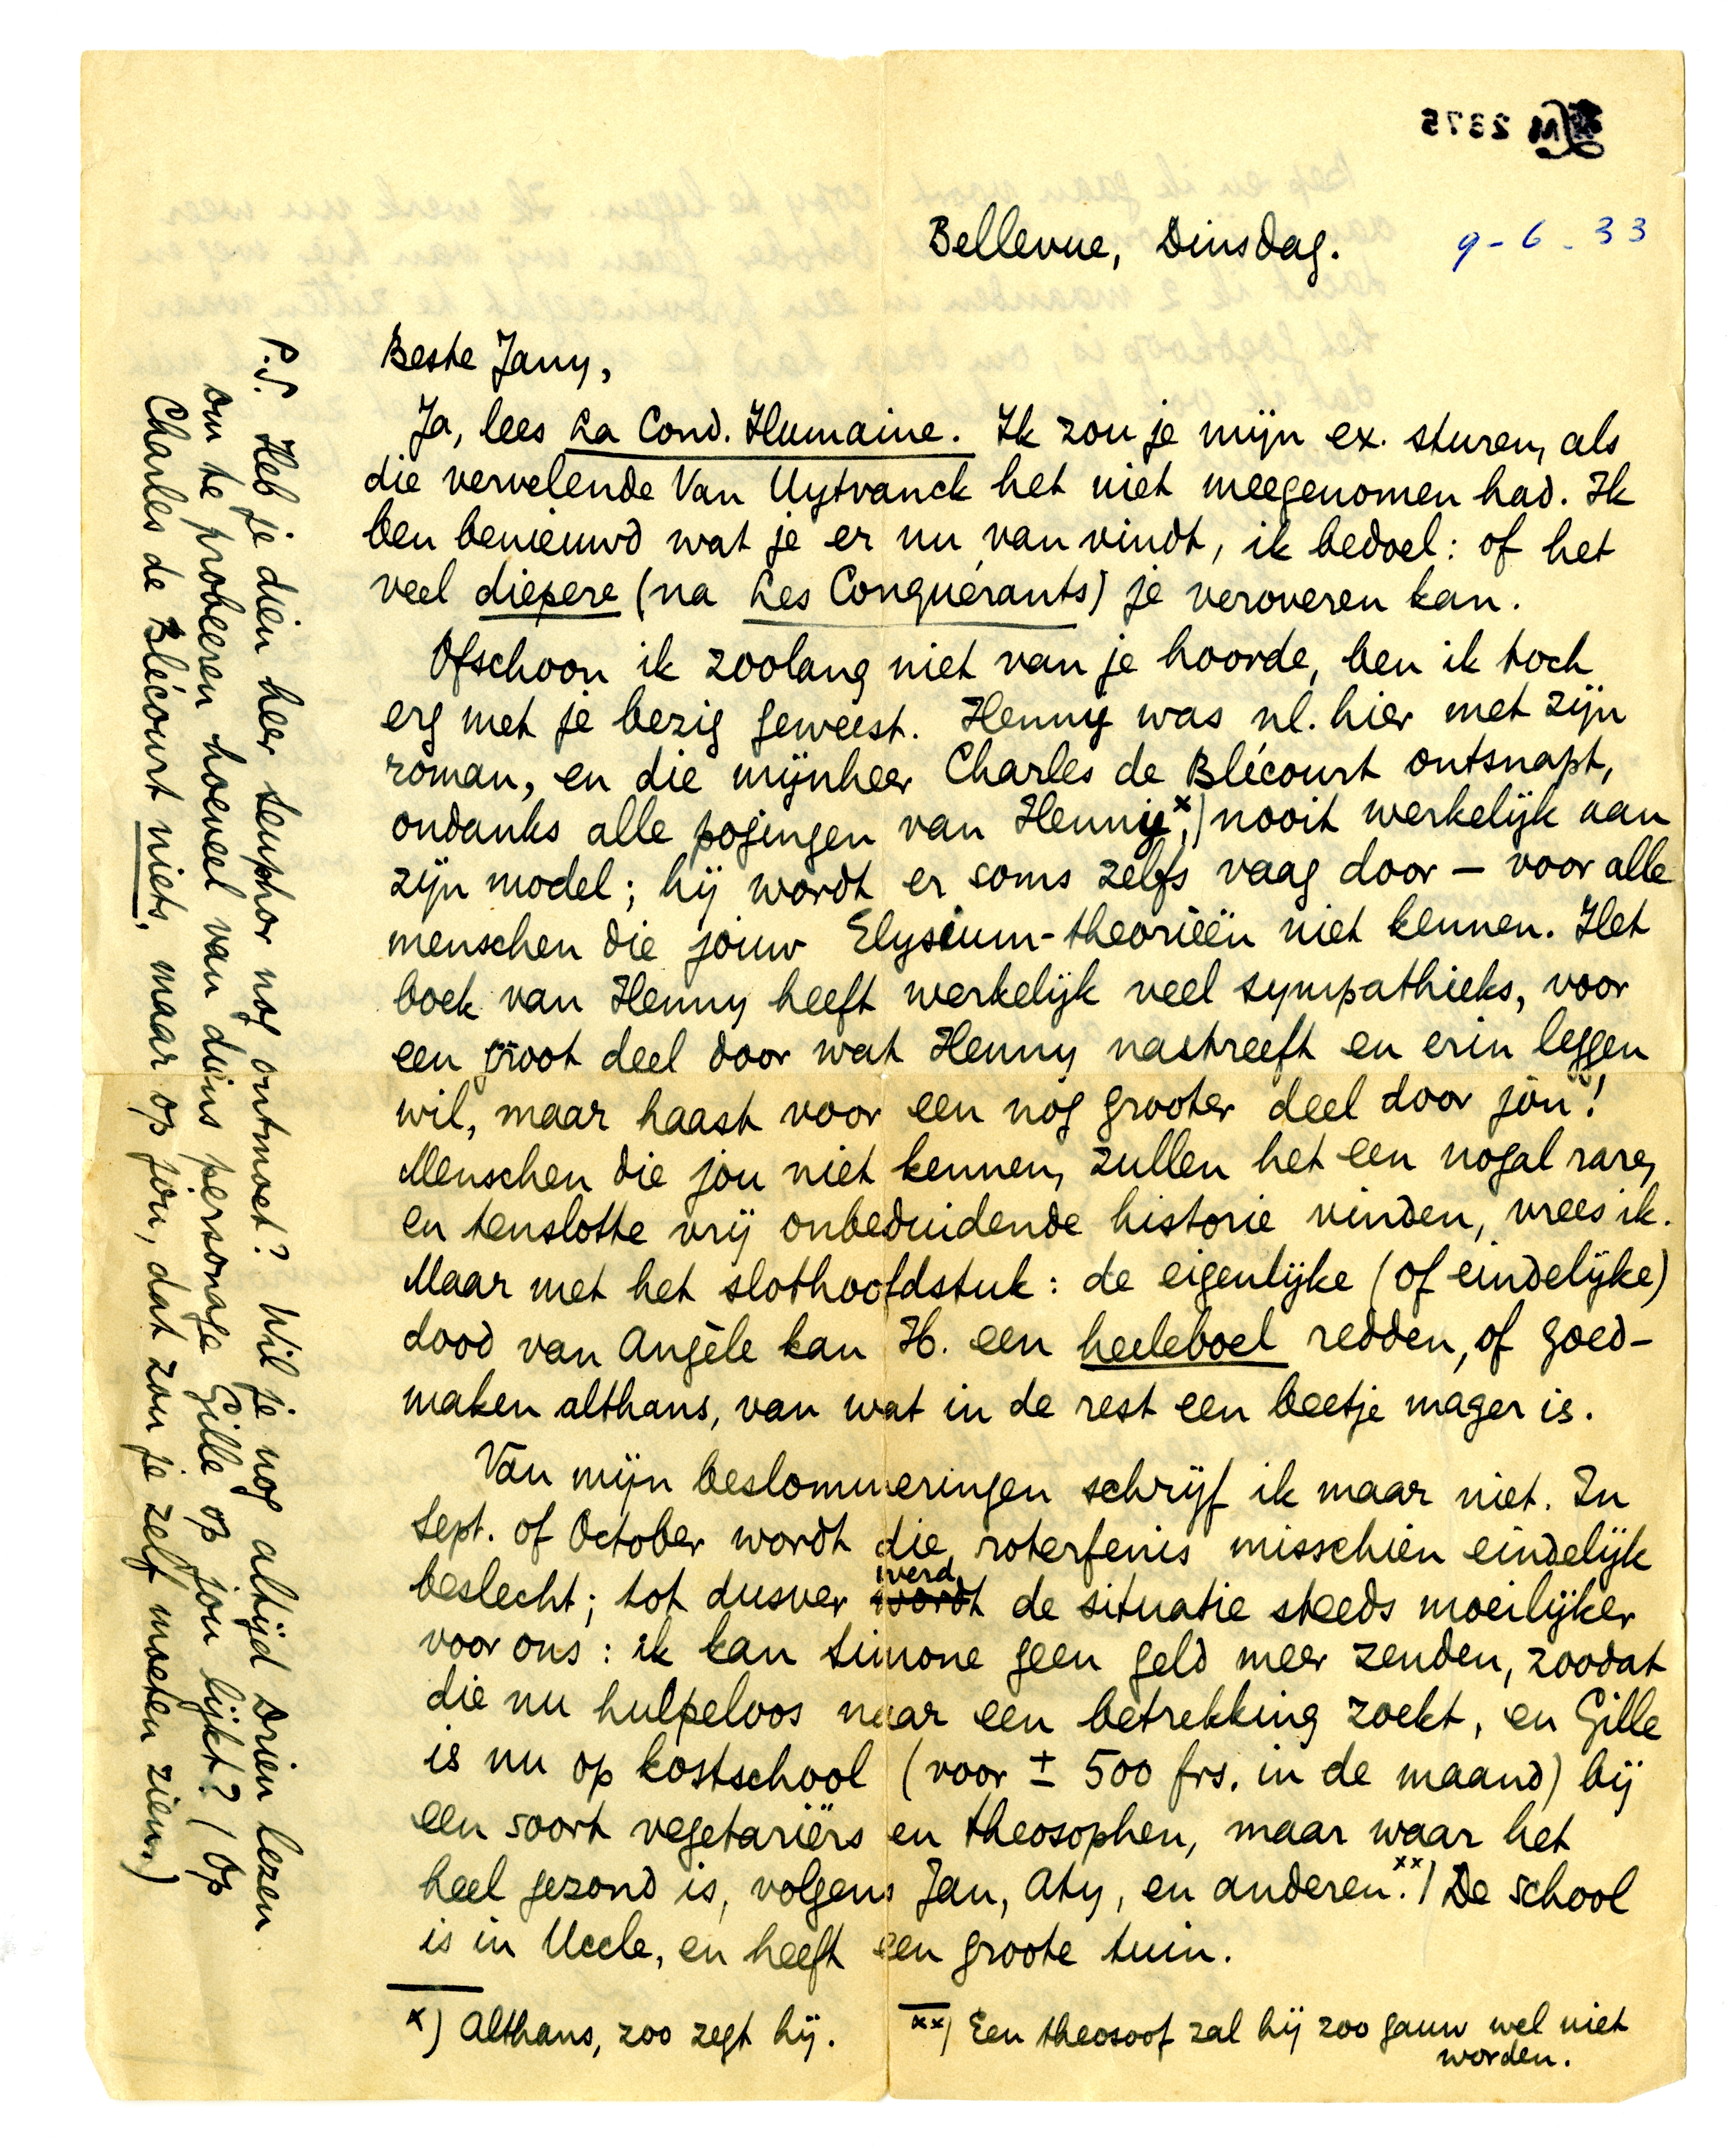 LM 2375
Bellevue, Dinsdag.
9-6-33
Beste Jany,
Ja, lees La Cond. Humaine. Ik zou je mijn ex. sturen, als
die vervelende Van Uytvanck het niet meegenomen had. Ik
ben benieuwd wat je er nu van vindt, ik bedoel: of het
veel diepere (na Les Conquérants) je veroveren kan.
Ofschoon ik zoolang niet van je hoorde, ben ik toch
erg met je bezig geweest. Henny was nl. hier met zijn
roman, en die mijnheer Charles de Blécourt ontsnapt,
ondanks alle pogingen van Henny x), nooit werkelijk aan
zijn model; hij wordt er soms zelfs vaag door — voor alle
menschen die jouw Elysium-theorieën niet kennen. Het
boek van Henny heeft werkelijk veel sympathieks, voor
een groot deel door wat Henny nastreeft en erin leggen
wil, maar haast voor een nóg grooter deel door jòù!
Menschen die jou niet kennen, zullen het een nogal rare,
en tenslotte vrij onbeduidende historie vinden, vrees ik.
Maar met het slothoofdstuk: de eigenlijke (of eindelijke)
dood van Angèle kan H. een heeleboel redden, of goed-
maken althans, van wat in de rest een beetje mager is.
Van mijn beslommeringen schrijf ik maar niet. In
Sept. of October wordt die roterfenis misschien eindelijk
beslecht; tot dusver wordt werd de situatie steeds moeilijker
voor ons: ik kan Simone geen geld meer zenden, zoodat
die nu hulpeloos naar een betrekking zoekt, en Gille
is nu op kostschool (voor ± 500 frs. in de maand) bij
een soort vegetariërs en theosophen, maar waar het
heel gezond is, volgens Jan, Aty, en anderen. xx) De school
is in Uccle, en heeft een groote tuin.
x) Althans, zoo zegt hij.
xx) Een theosoof zal hij zoo gauw wel niet
worden.
P.S. Heb je dien heer Seuphor nog ontmoet? Wil je nog altijd Drieu lezen
om te probeeren hoeveel van diens personage Gille op jou lijkt? (Op
Charles de Blécourt niets, maar op jou, dat zou je zelf moeten zien.)